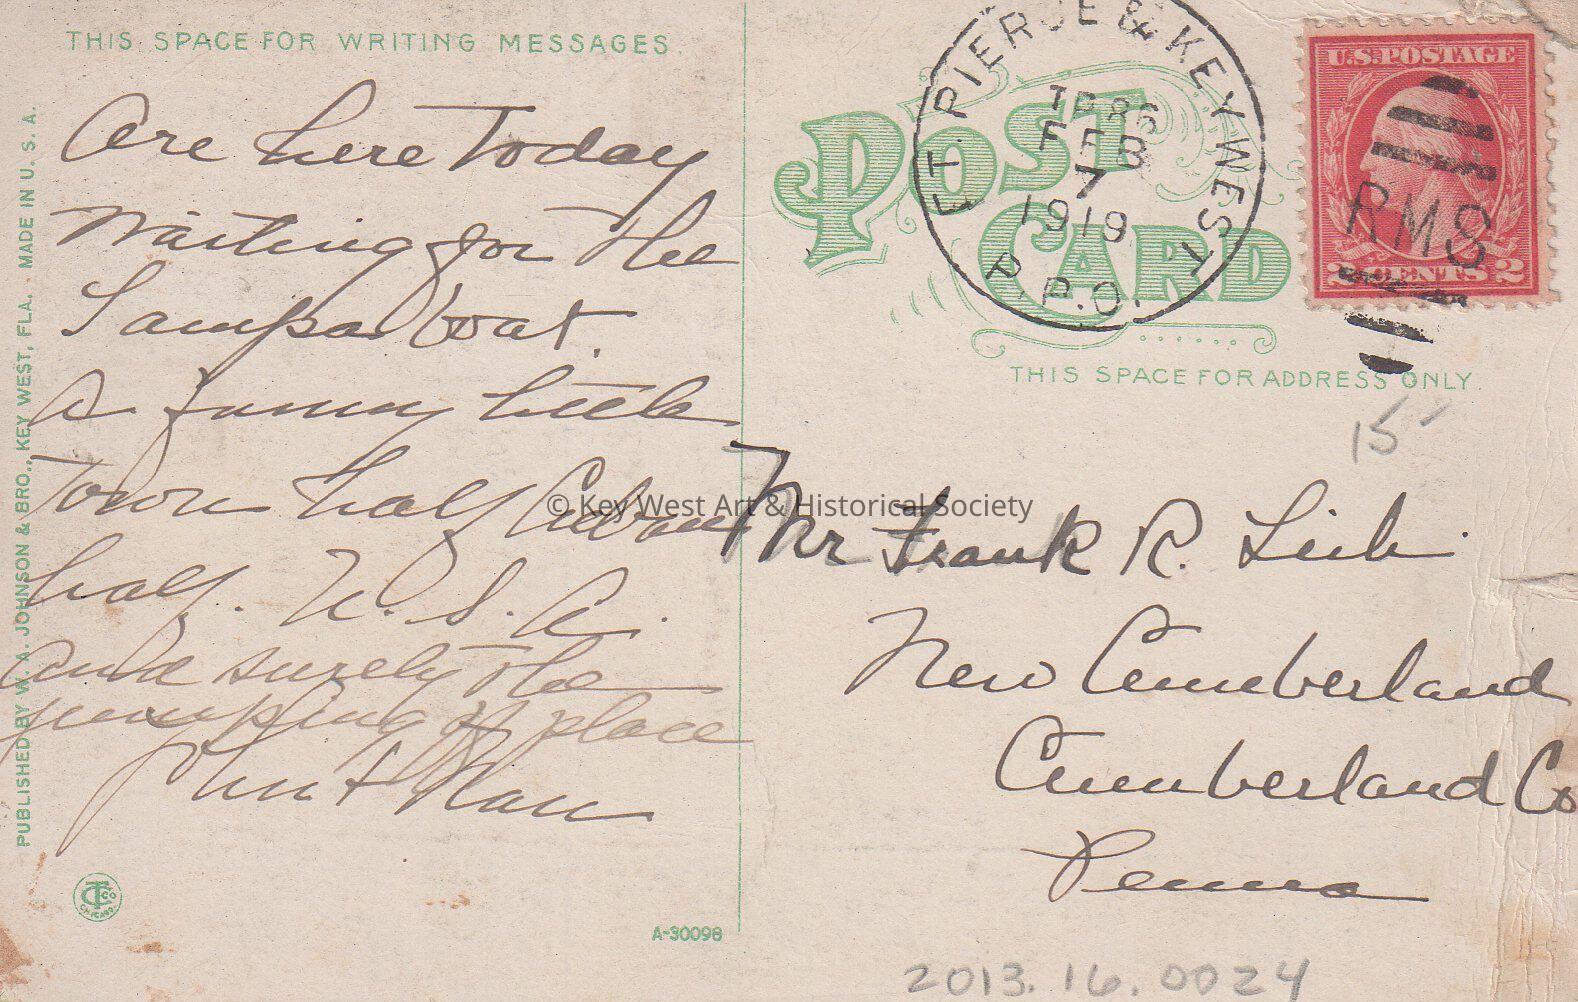 THIS SPACE FOR WRITING MESSAGES.
Are here Today
Waiting for the
Tampa boat.
A funny little
Town half Cuban
half. U. S. A.
and surely the
jumping off place
PUBLISHED BY W. A. JOHNSON & BRO., KEY WEST, FLA. MADE IN U. S. A.
CTCO CHICAGO
A-30098
POST CARD
FT. PIERCE & KEY WEST
TR 86
FEB
7
1919
R.P.O.
U.S. POSTAGE
2 CENTS 2
RMS
THIS SPACE FOR ADDRESS ONLY.
15-
Mr Frank R. Lieb.
New Cumberland
Cumberland Co
Penna
2013.16.0024
© Key West Art & Historical Society